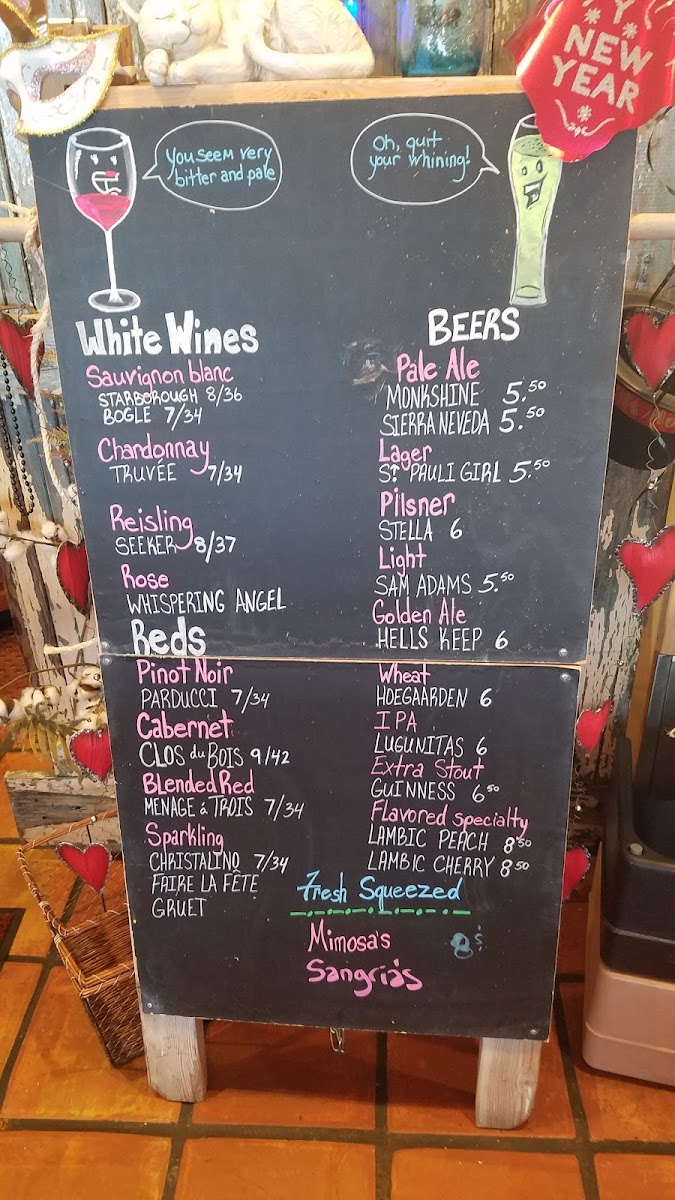 Y
NEW
YEAR
You seem very
bitter and pale
Oh, quit
your whining!
White Wines
Sauvignon blanc
STARBOROUGH 8/36
BOGLE 7/34
Chardonnay
TRUVÉE 7/34
Reisling
SEEKER 8/37
Rose
WHISPERING ANGEL
Reds
Pinot Noir
PARDUCCI 7/34
Cabernet
CLOS du BOIS 9/42
Blended Red
MENAGE á TROIS 7/34
Sparkling
CHRISTALINO 7/34
FAIRE LA FÊTE
GRUET
BEERS
Pale Ale
MONKSHINE 5.50
SIERRA NEVEDA 5.50
Lager
ST. PAULI GIRL 5.50
Pilsner
STELLA 6
Light
SAM ADAMS 5.50
Golden Ale
HELLS KEEP 6
Wheat
HOEGAARDEN 6
IPA
LUGUNITAS 6
Extra Stout
GUINNESS 6 50
Flavored specialty
LAMBIC PEACH 8 50
LAMBIC CHERRY 8 50
Fresh Squeezed
Mimosa's
Sangria's